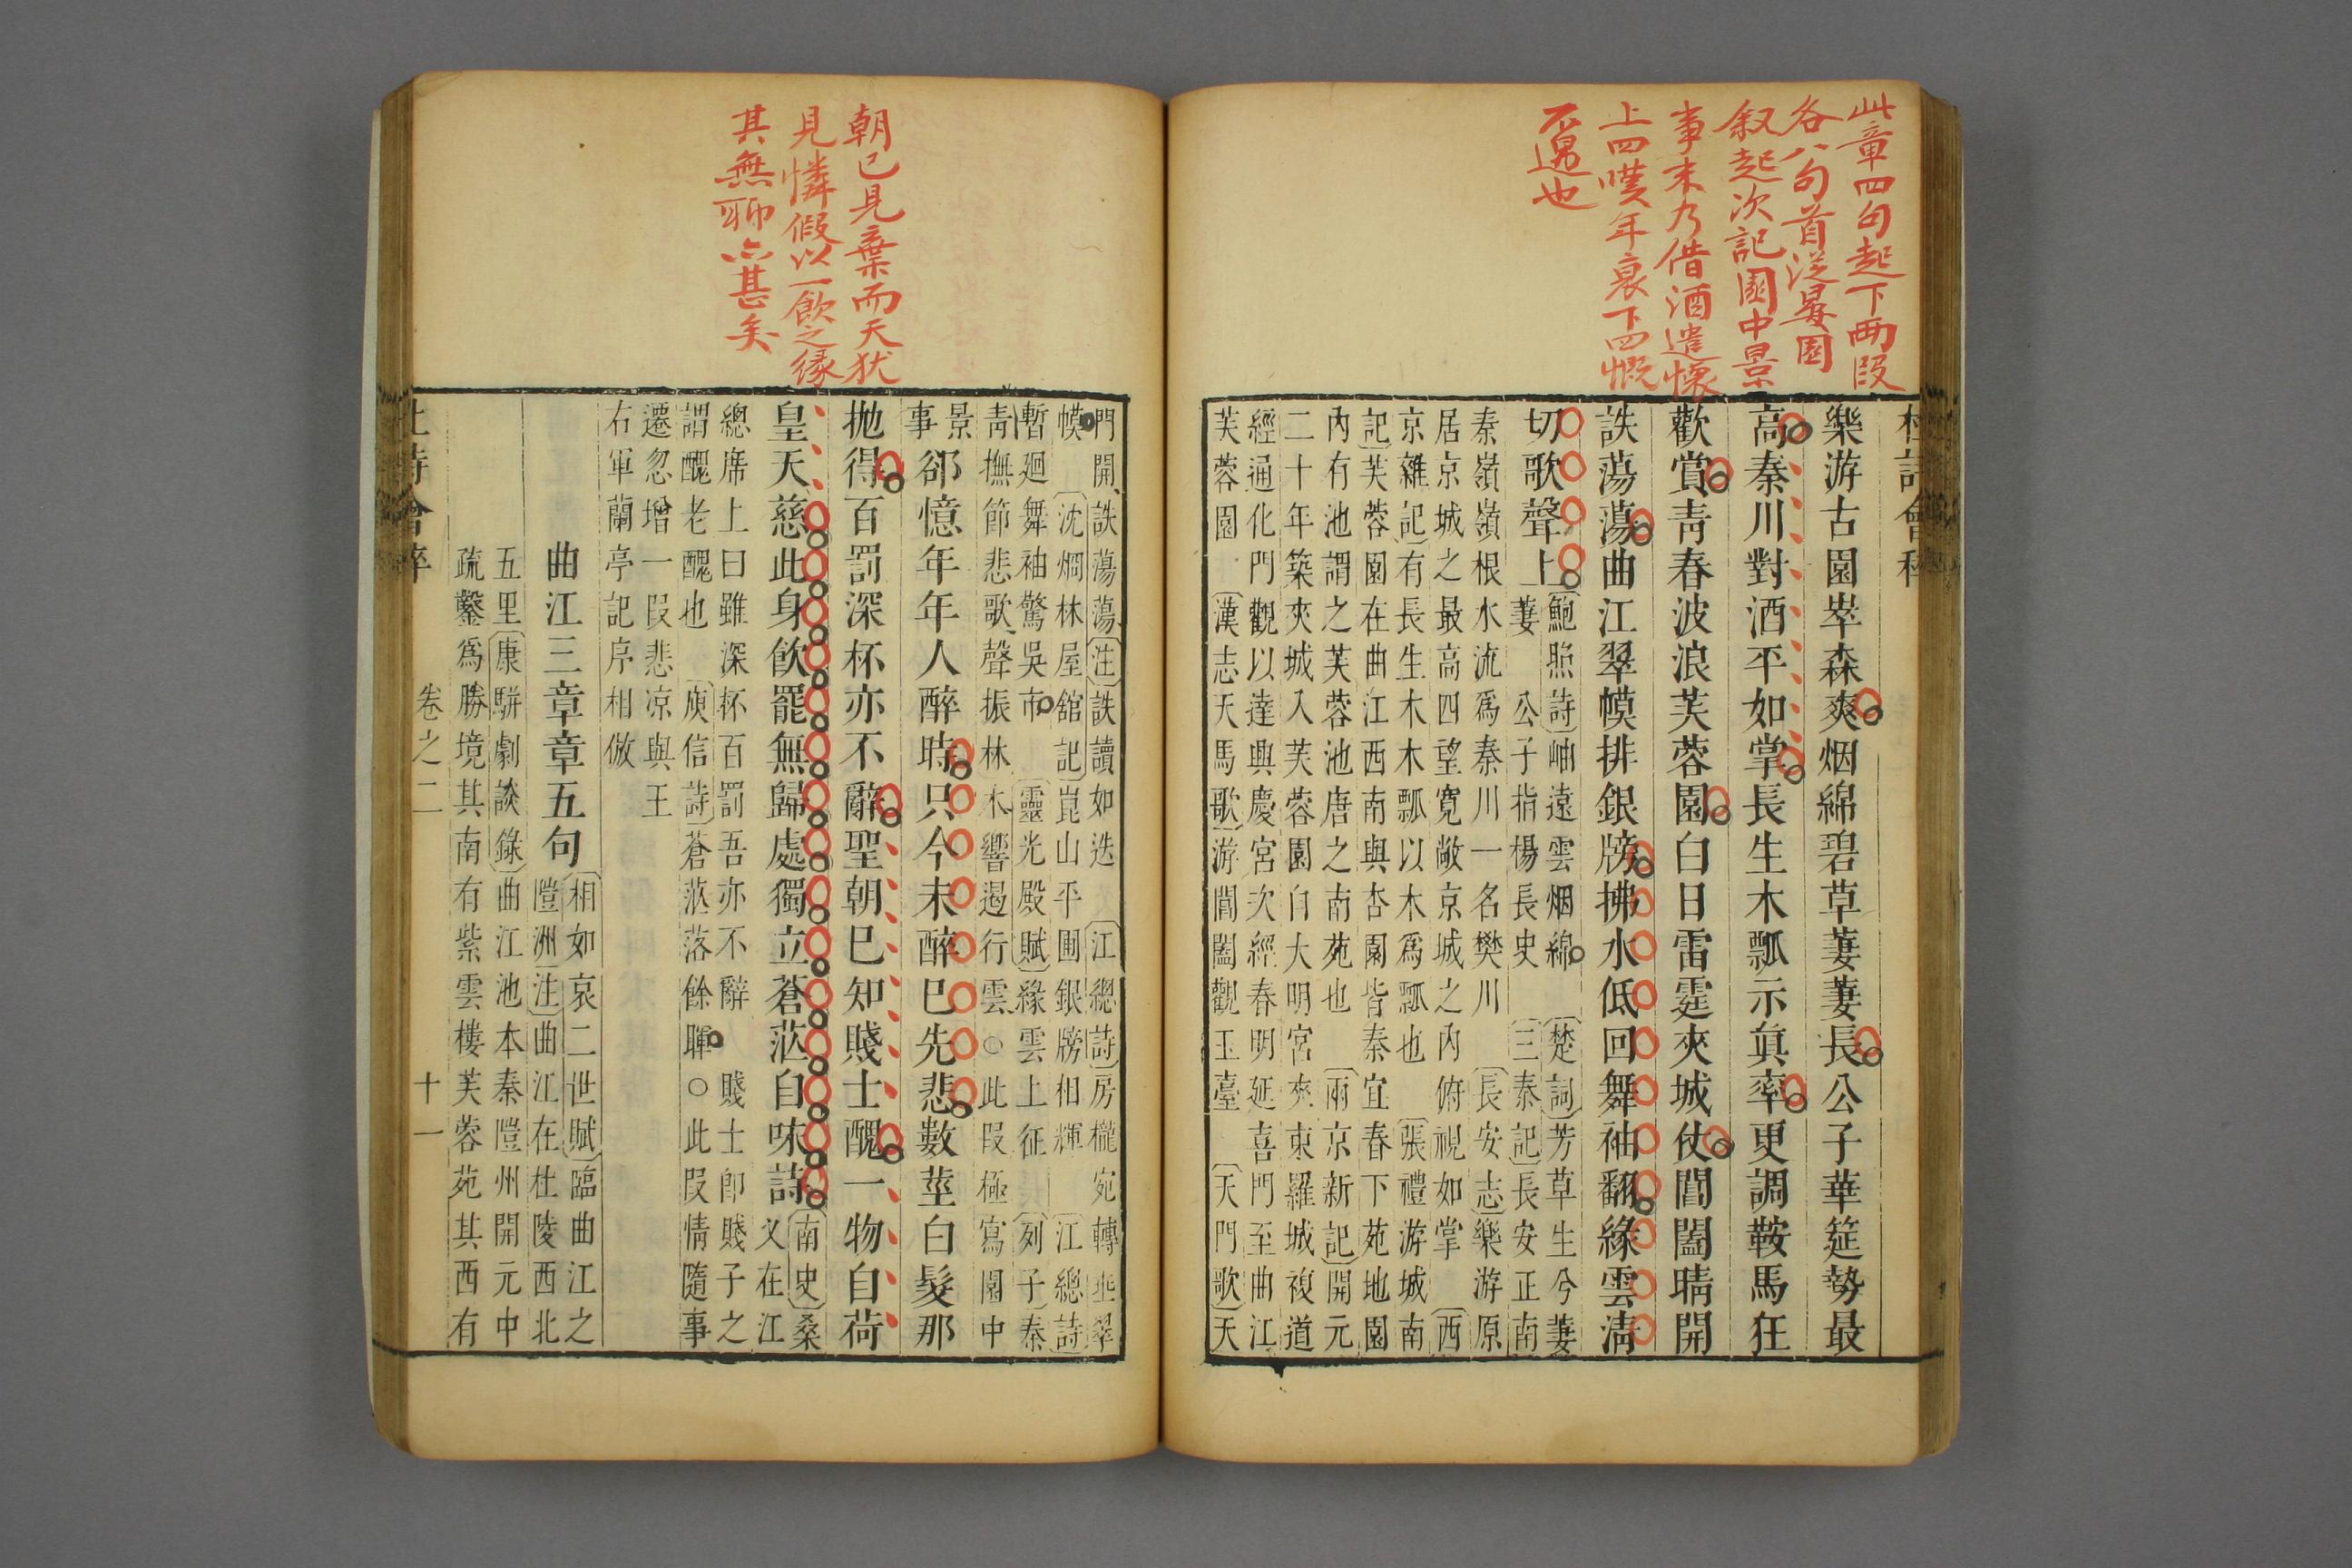 此章四句起下兩段
各八句首從㬌園
叙起次記園中景
事末乃借酒遣懷
上四嘆年衰下四慨
不遇也
樂游古園崒森爽烟綿碧草萋萋長公子華筵勢最
高秦川對酒平如掌長生木瓢示眞率更調鞍馬狂
歡賞青春波浪芙蓉園白日雷霆夾城仗閶闔晴開
詄蕩蕩曲江翠幙排銀牓拂水低回舞袖翻緣雲淸
切歌聲上
鮑照詩岫遠雲烟綿 楚詞芳草生兮萋
萋 公子指楊長史 三秦記長安正南
秦嶺嶺根水流爲秦川一名樊川 長安志樂游原
居京城之最高四望寬敞京城之內俯視如掌 西
京雜記有長生木木瓢以木爲瓢也 張禮游城南
記芙蓉園在曲江西南與杏園皆秦宜春下苑地園
內有池謂之芙蓉池唐之南苑也 兩京新記開元
二十年築夾城入芙蓉園自大明宮夾東羅城複道
經通化門觀以達興慶宮次經春明延喜門至曲江
芙蓉園 漢志天馬歌游閶闔觀玉臺 天門歌天
門開詄蕩蕩注詄讀如迭 江總詩房櫳宛轉垂翠
幙 沈烱林屋館記崑山平圃銀牓相輝 江總詩
暫廻舞袖驚吳市 靈光殿賦緣雲上征 列子秦
青撫節悲歌聲振林木響遏行雲○此段極寫園中
景
事
郤憶年年人醉時只今未醉巳先悲數莖白髮那
拋得百罰深杯亦不辭聖朝巳知賤士醜一物自荷
皇天慈此身飮罷無歸處獨立蒼茫自咏詩
南史桑
乂在江
總席上曰雖深杯百罰吾亦不辭 賤士卽賤子之
謂醜老醜也 庾信詩蒼茫落餘暉○此段情隨事
遷忽增一段悲凉與王
右軍蘭亭記序相倣
曲江三章章五句
相如哀二世賦臨曲江之
隑洲注曲江在杜陵西北
五里康駢劇談錄曲江池本秦隑州開元中
疏鑿爲勝境其南有紫雲樓芙蓉苑其西有
卷之二
十一
朝已見棄而天猶
見憐假以一飮之緣
其無聊亦甚矣